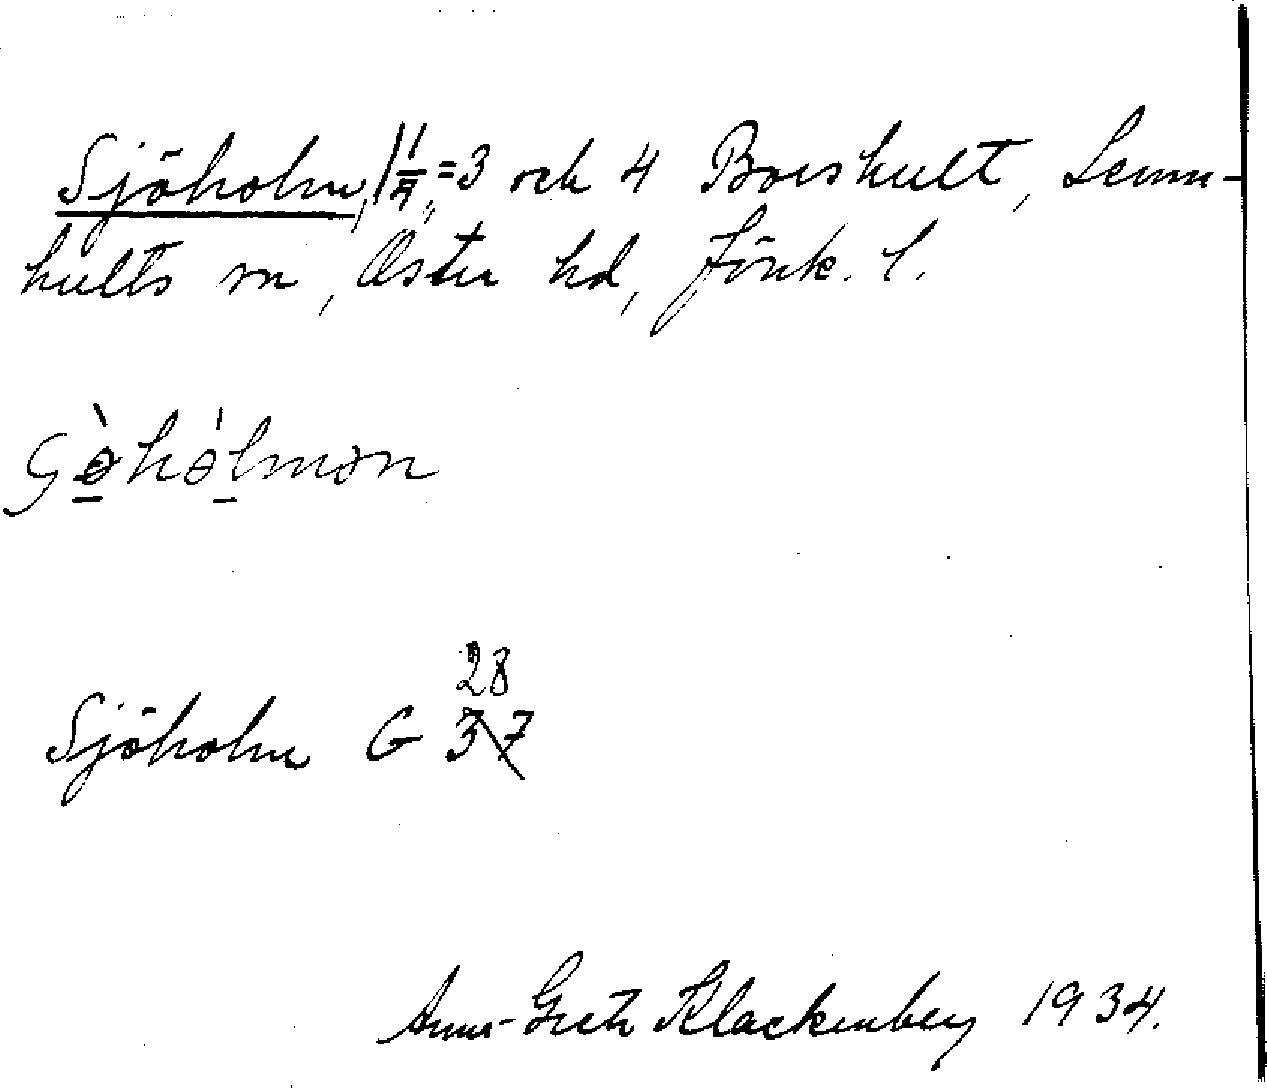 Sjöholm, 1 1/4 = 3 och 4 Boershult, Lemn-
hults sn, Östra hd, Jönk. l.
Sjöholm G 28 37
Anna-Greta Klackenberg 1934.